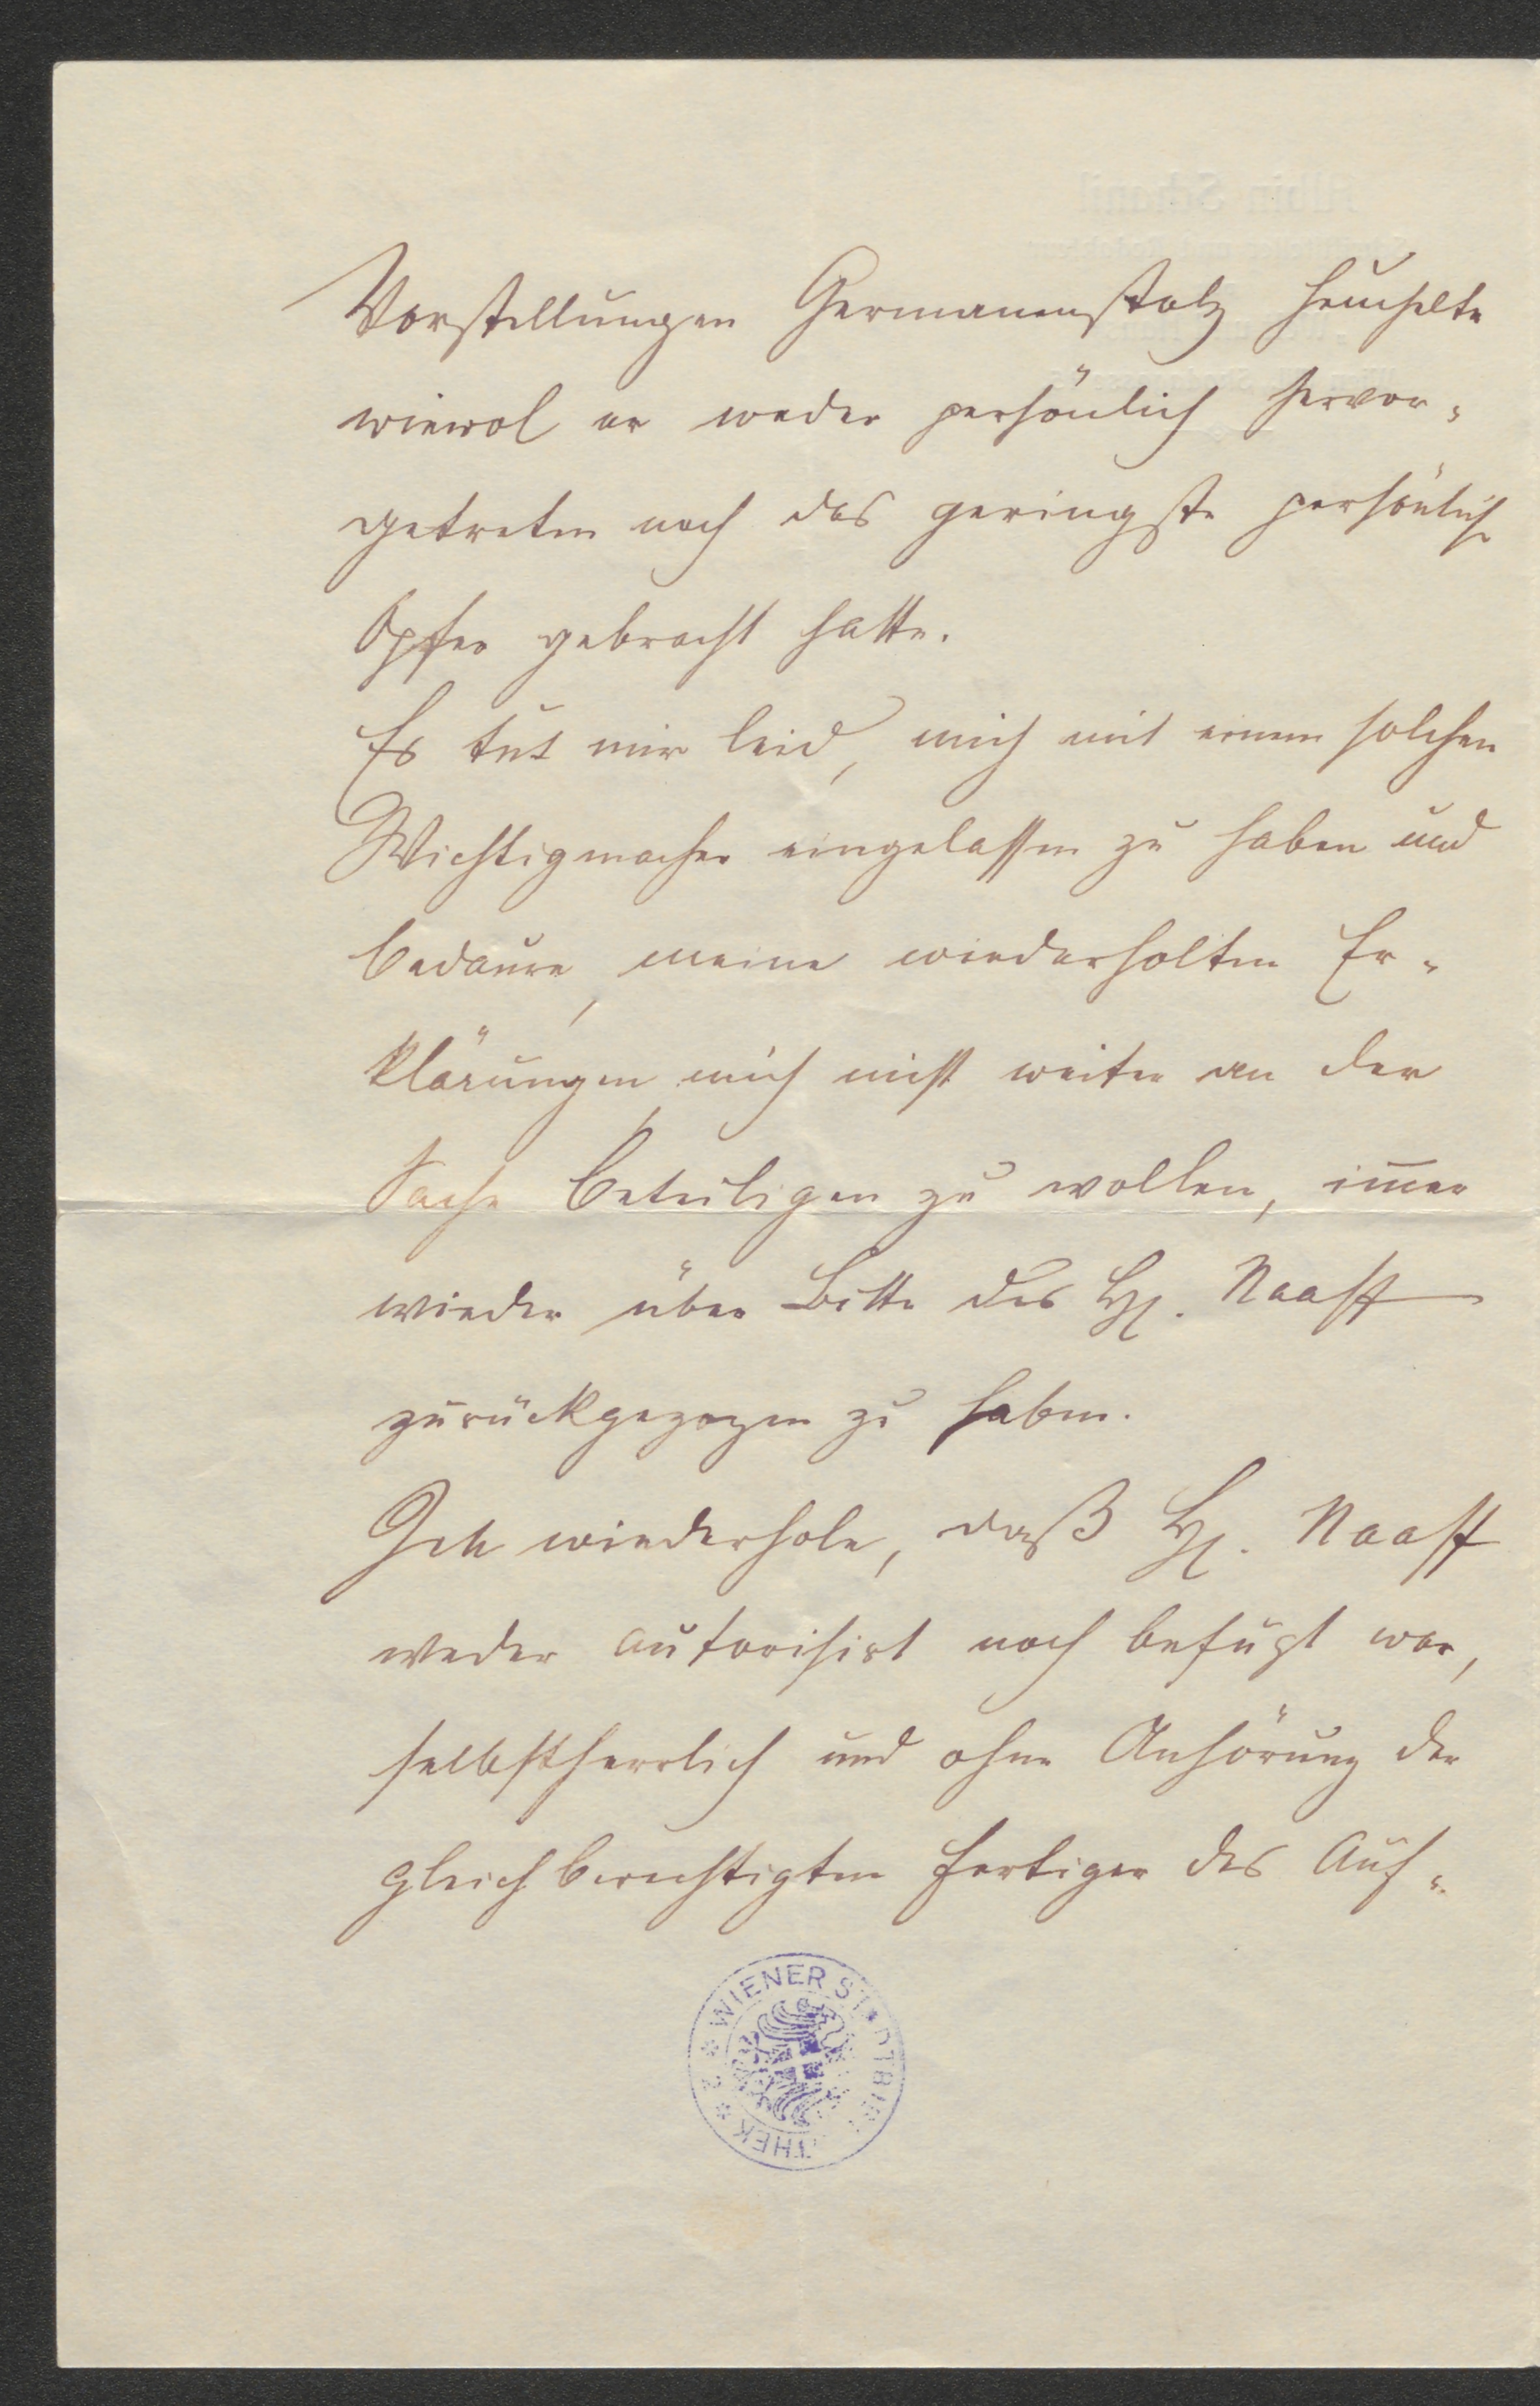 Vorstellungen Germanenstolz heuchelte
wiewol er weder persönlich hervor-
getreten noch das geringste persönliche
Opfer gebracht hatte.
Es tut mir leid, mich mit einem solchen
Wichtigmacher eingelassen zu haben und
bedaure, meine wiederholten Er-
klärungen, mich nicht weiter an der
Sache beteiligen zu wollen, im̅er
wieder über Bitte des H. Naaff
zurückgezogen zu haben.
Ich wiederhole, daß H. Naaff
weder autorisirt noch befugt war,
selbstherrlich und ohne Anhörung der
gleichberechtigten Fertiger des Auf-
* WIENER STADTBIBLIOTHEK *